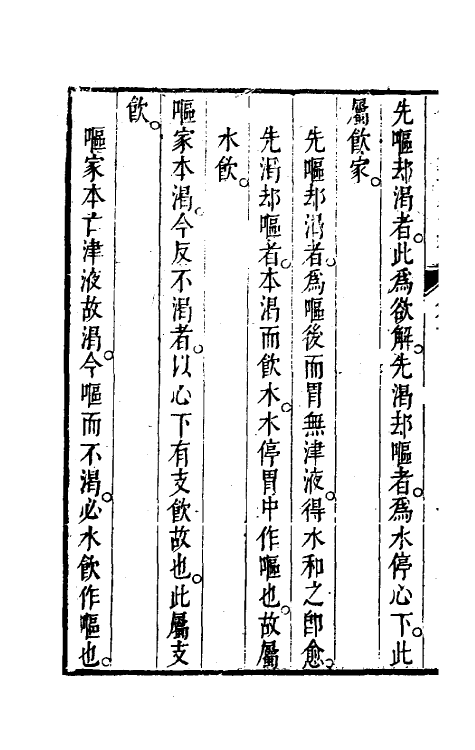 先嘔却渴者。此爲欲解。先渴却嘔者。爲水停心下。此
屬飮家。
先嘔却渴者。爲嘔後而胃無津液。得水和之卽愈。
先渴却嘔者。本渴而飮水。水停胃中作嘔也。故屬
水飮。
嘔家本渴。今反不渴者。以心下有支飮故也。此屬支
飮。
嘔家本亡津液故渴。今嘔而不渴。必水飮作嘔也。